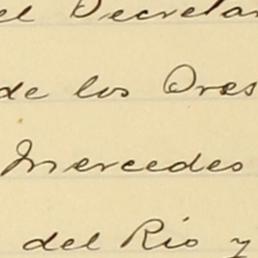 el Decretar
de los Ores
Mercedes
del Río y